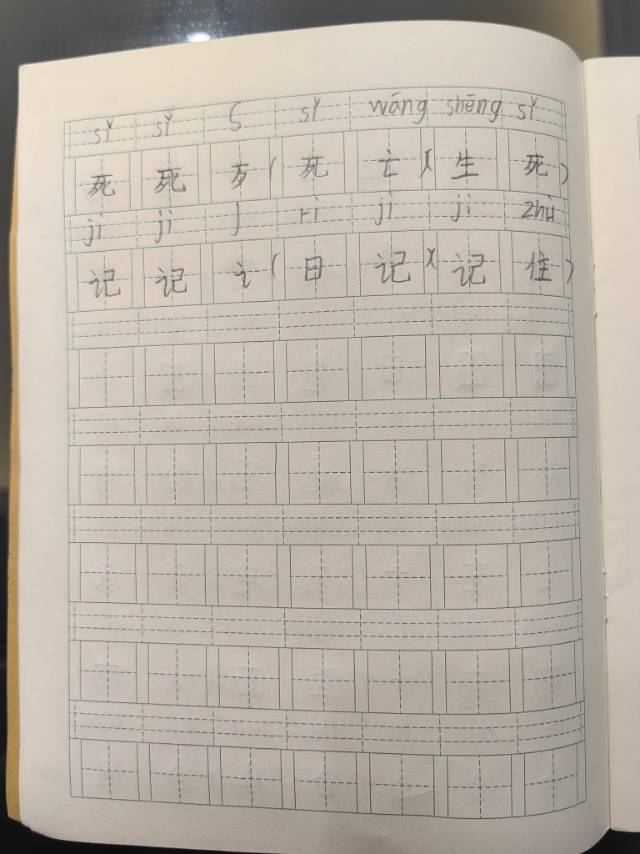 sǐ sǐ s sǐ wáng shēng sǐ
死 死 歹 ( 死 亡 ) ( 生 死 )
jì jì j rì jì jì zhù
记 记 讠 ( 日 记 ) ( 记 住 )